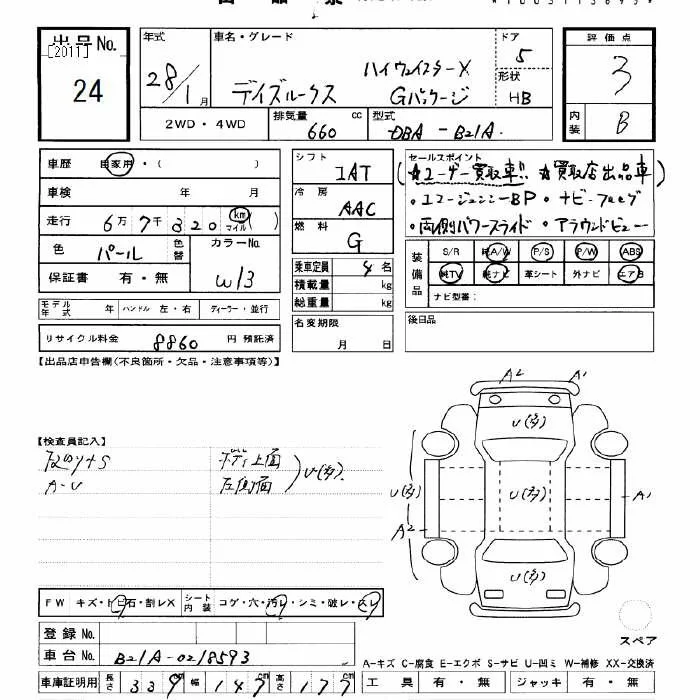 出品No.
[2011]
24
年式
28/1月
車名・グレード
デイズルークス
ハイウェイスターX
Gパッケージ
ドア
5
形状
HB
評価点
3
内装
B
2WD・4WD
排気量
660 cc
型式
DBA - B21A
車歴 自家用・( )
車検 年 月
走行 6万7千320 km マイル
色 パール
色替
カラーNo.
W13
保証書 有・無
シフト
IAT
冷房
AAC
燃料
G
乗車定員 4名
積載量 kg
総重量 kg
セールスポイント
(☆ユーザー買取車!! ☆買取店出品車)
・エマージェンシーBP ・ナビ・フルセグ
・両側パワースライド ・アラウンドビュー
装備品
S/R 純A/W P/S P/W ABS
純TV 純ナビ 革シート 外ナビ エアB
ナビ型番:
モデル年式 年 ハンドル 左・右 ディーラー・並行
名変期限
月 日
後日品
リサイクル料金 8860 円 預託済
【出品店申告欄(不良箇所・欠品・注意事項等)】
A2 A1
U(多)
【検査員記入】
A-U
ボディ上面
左側面
U(多)
U(多)
U(多)
A1
A2
U(多)
FW キズ・トビ石・割レX
シート内装 コゲ・穴・汚レ・シミ・破レ・スレ
登録No.
車台No. B21A-0218593
スペア
A-キズ C-腐食 E-エクボ S-サビ U-凹ミ W-補修 XX-交換済
車庫証明用 長さ 339cm 幅 147cm 高さ 177cm
工具 有・無 ジャッキ 有・無